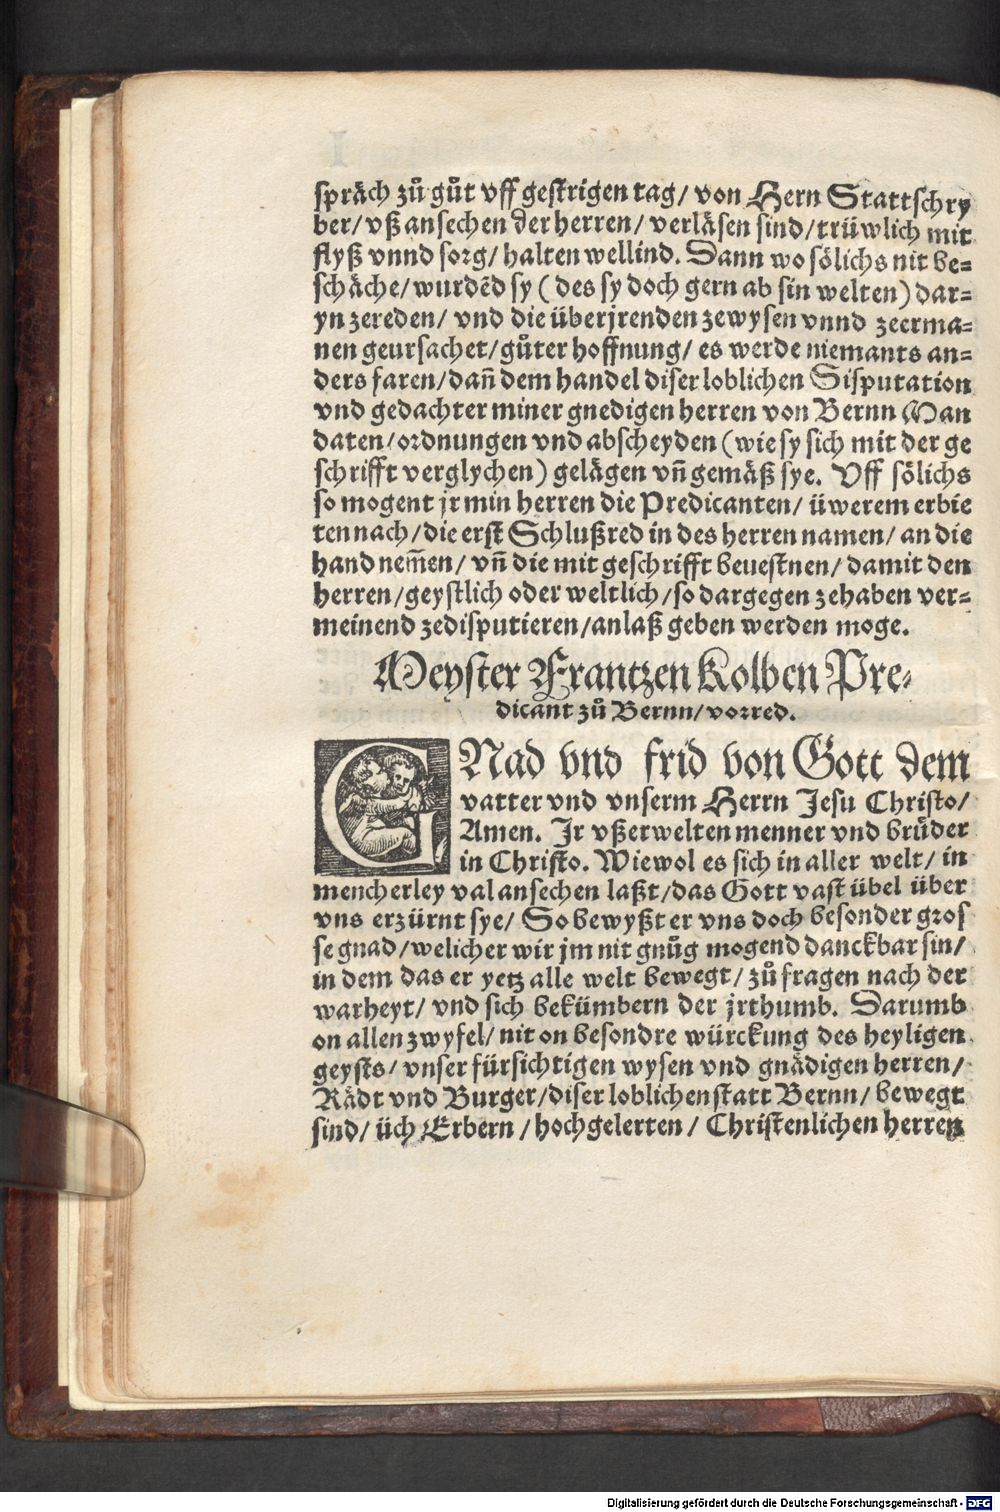 spräch zů gůt vff gestrigen tag/ von Hern Stattschry
ber/ vß ansechen der herren/ verläsen sind/ trüwlich mit
flyß vnnd sorg/ halten wellind. Dann wo sölichs nit be=
schäche/ wurdēd sy ( des sy doch gern ab sin welten) dar=
yn zereden/ vnd die überjrenden zewysen vnnd zeerma=
nen geursachet/ gůter hoffnung/ es werde niemants an=
ders faren/ dañ dem handel diser loblichen Disputation
vnd gedachter miner gnedigen herren von Bernn Man
daten/ ordnungen vnd abscheyden (wie sy sich mit der ge
schrifft verglychen) gelägen vñ gemäß sye. Vff sölichs
so mogent jr min herren die Predicanten/ üwerem erbie
ten nach/ die erst Schlußred in des herren namen/ an die
hand nem̃en/ vñ die mit geschrifft beuestnen/ damit den
herren/ geystlich oder weltlich/ so dargegen zehaben ver=
meinend zedisputieren/ anlaß geben werden moge.
Meyster Frantzen Kolben Pre=
dicant zů Bernn/ vorred.
GNad vnd frid von Gott dem
vatter vnd vnserm Herrn Jesu Christo/
Amen. Jr vßerwelten menner vnd brüder
in Christo. Wiewol es sich in aller welt/ in
mencherley val ansechen laßt/ das Gott vast übel über
vns erzürnt sye/ So bewyßt er vns doch besonder gros
se gnad/ welicher wir jm nit gnůg mogend danckbar sin/
in dem das er yetz alle welt bewegt/ zů fragen nach der
warheyt/ vnd sich bekümbern der jrthumb. Darumb
on allen zwyfel/ nit on besondre würckung des heyligen
geysts/ vnser fürsichtigen wysen vnd gnädigen herren/
Rädt vnd Burger/ diser loblichen statt Bernn/ bewegt
sind/ üch Erbern / hochgelerten/ Christenlichen herren
Digitalisierung gefördert durch die Deutsche Forschungsgemeinschaft - DFG